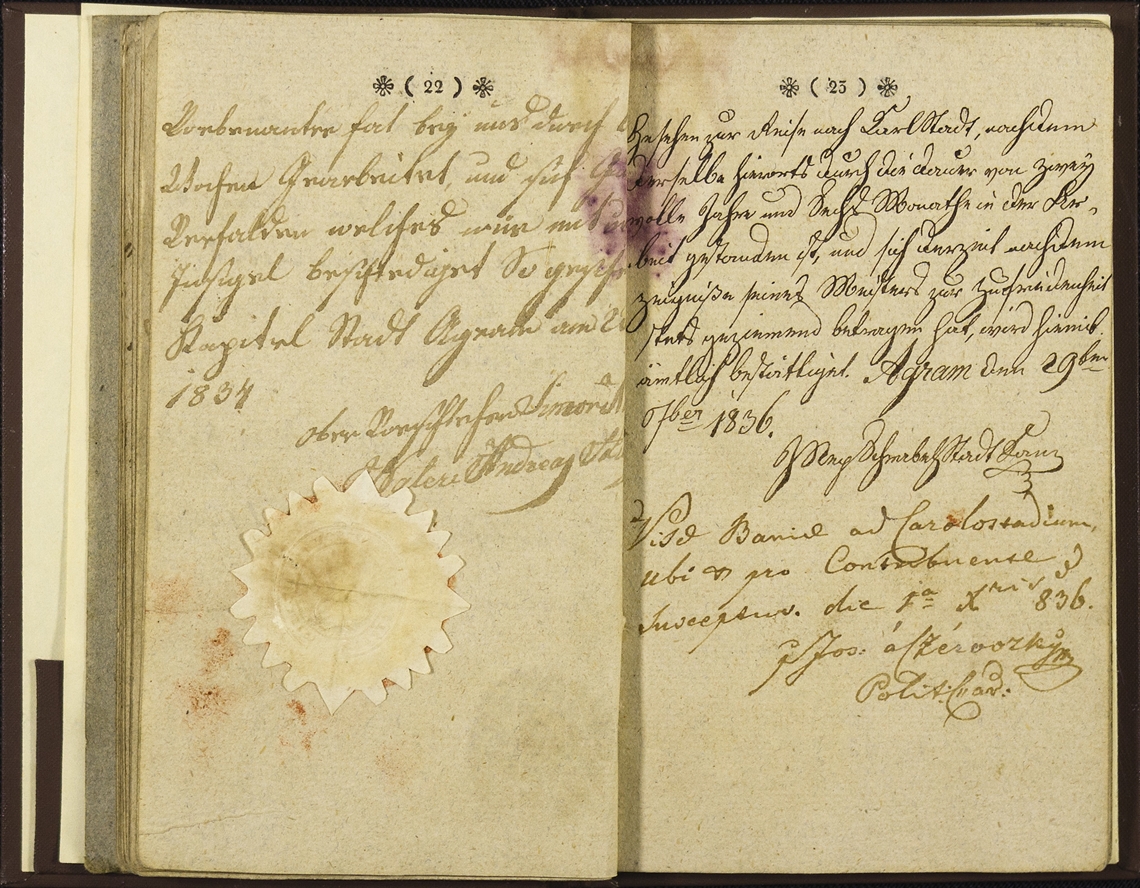 ( 22 )
Vorbenanter hat bey uns durch
Wochen Gearbeitet, und sich
Verhalden welches wir mit
Insigel bestettiget So geschehen
Kapitel Stadt Agram am 2
1834
ober Vorsteher
Andreas
( 23 )
Gesehen zur Reise nach Carlstadt, nachdem
derselbe hierorts durch die dauer von zwey
volle Jahre und Sechs Monathe in der Ar-
beit gestanden ist, und sich derzeit nach dem
Zeugniße seines Meisters zur Zufriedenheit
stets geziemend betragen hat, wird hiemit
ämtlich bestättiget. Agram den 29ten
9ber 1836.
Stadt
Visd ad Carolostadium,
ubi & pro Contribuente
Susceptus. die 1a Xris 836.
Jos:
Polit: